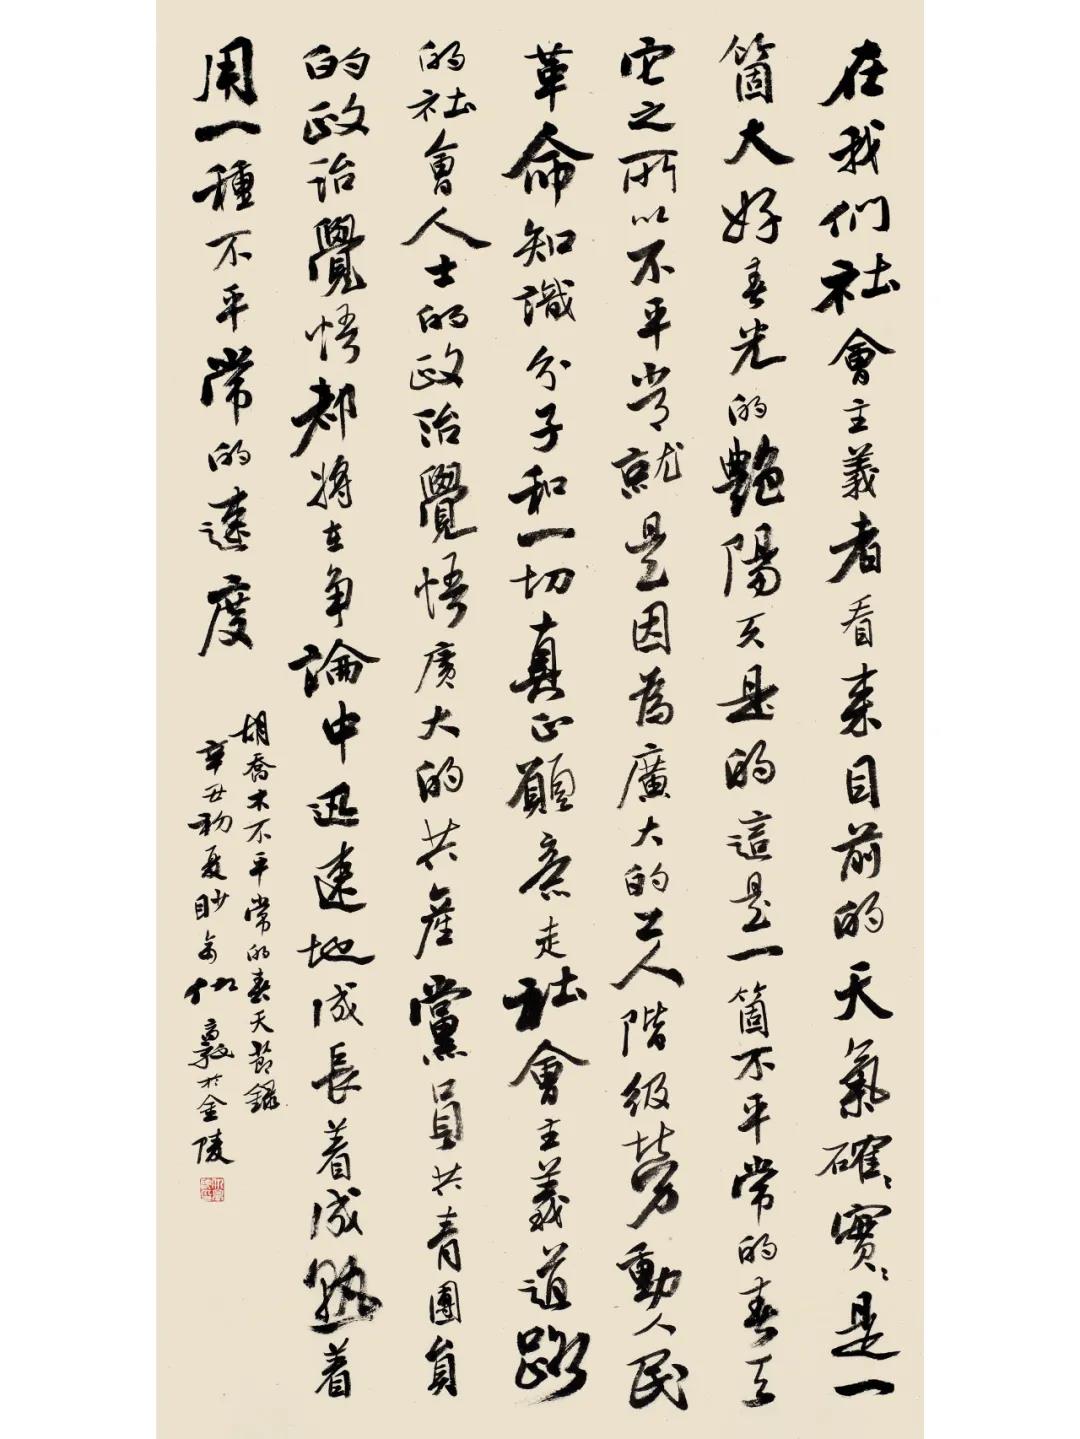 在我们社會主義者看来目前的天氣確〻實〻是一
箇大好春光的艷陽天是的這是一箇不平常的春天
它之所以不平常就是因為廣大的工人階級勞動人民
革命知識分子和一切真正願意走社會主義道路
的社會人士的政治覺悟廣大的共產黨員共青團員
的政治覺悟都將在争論中迅速地成長着成熟着
用一種不平常的速度
胡喬木不平常的春天節錄
辛丑初夏於金陵